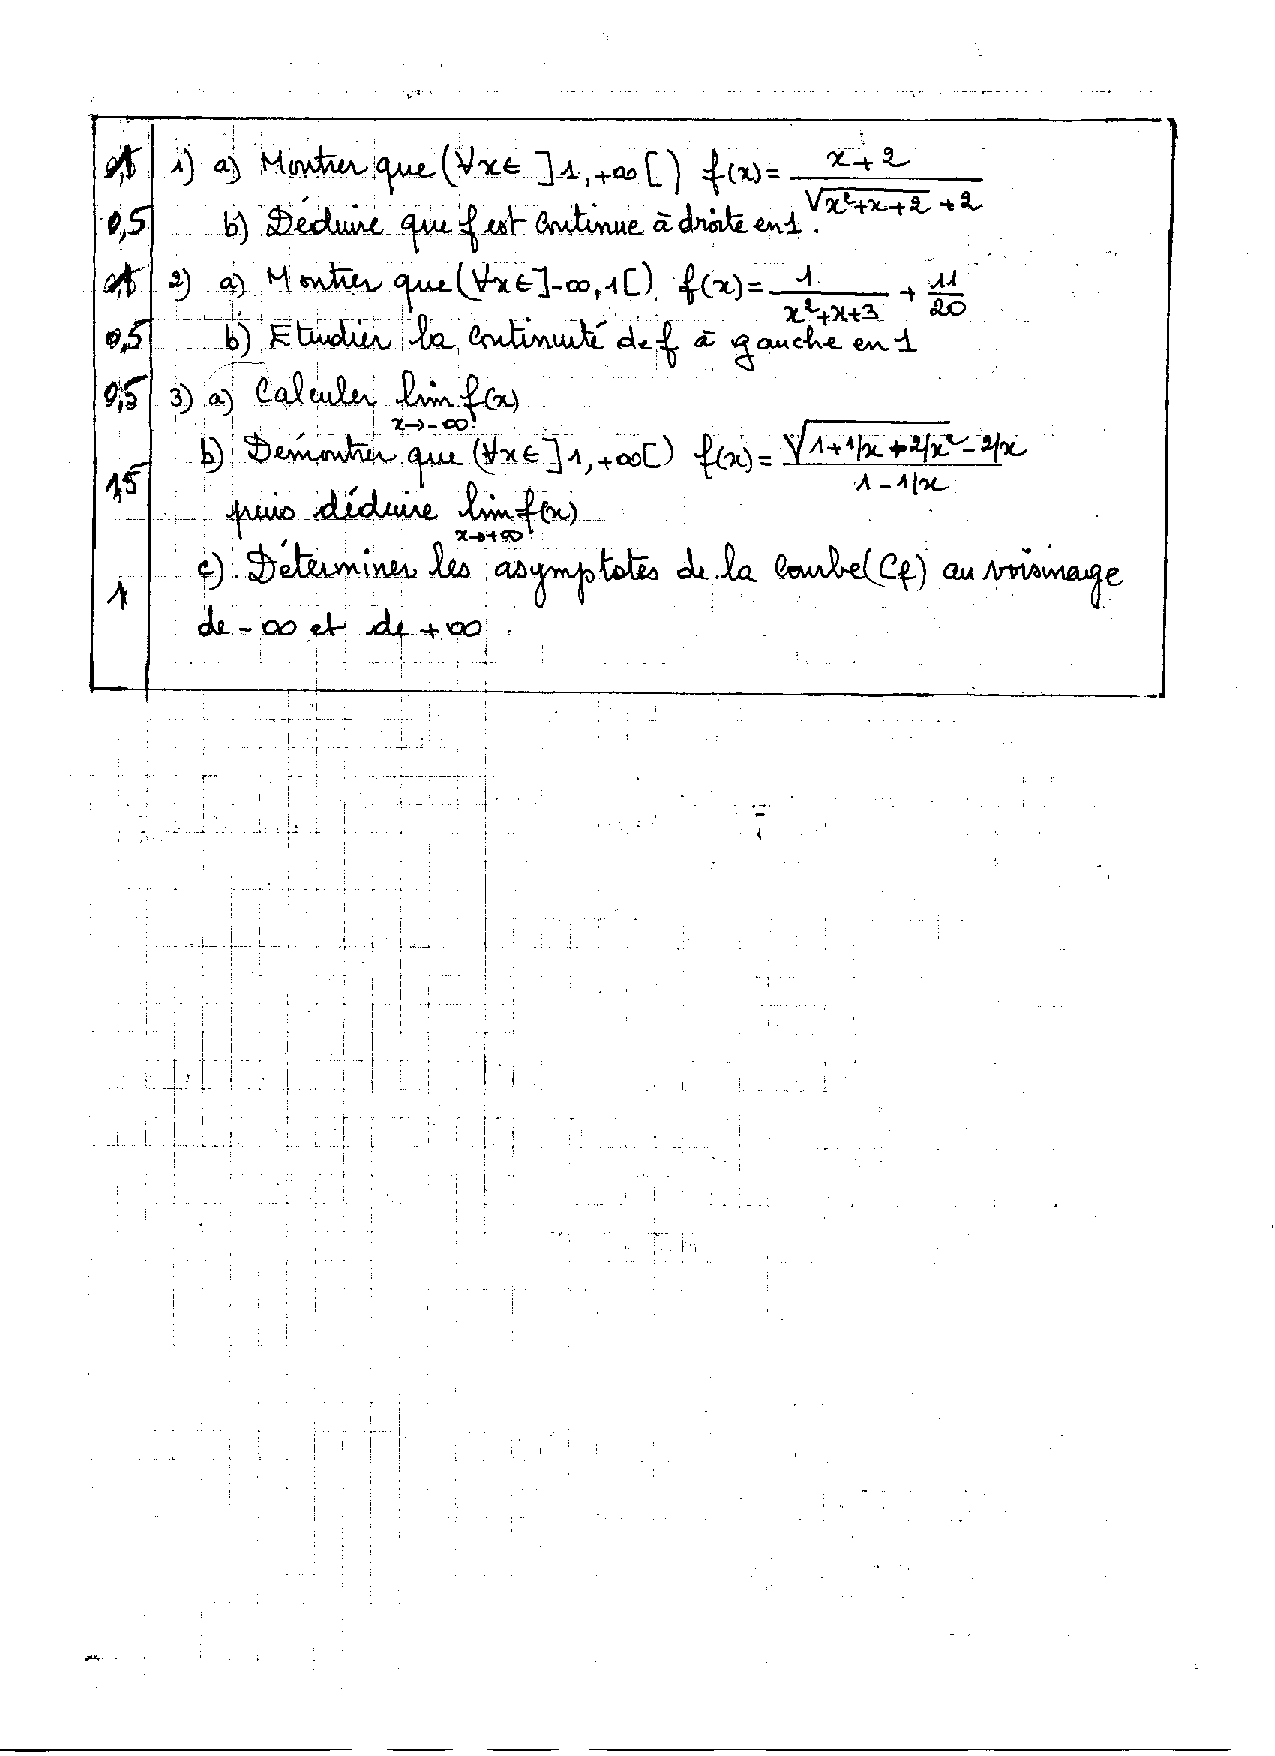 0,5 1) a) Montrer que (∀x∈ ]1,+∞[) f(x) = (x+2)/(√(x²+x+2) +2)
0,5 b) Déduire que f est continue à droite en 1.
0,5 2) a) Montrer que (∀x∈]-∞,1[) f(x) = 1/(x²+x+3) + 11/20
0,5 b) Etudier la continuité de f à gauche en 1
0,5 3) a) Calculer lim f(x) x→-∞
b) Démontrer que (∀x∈]1,+∞[) f(x) = (√(1+1/x+2/x²) - 2/x)/(1-1/x)
1,5 puis déduire lim f(x) x→+∞
c) Déterminer les asymptotes de la courbe (Cf) au voisinage
1 de -∞ et de +∞.